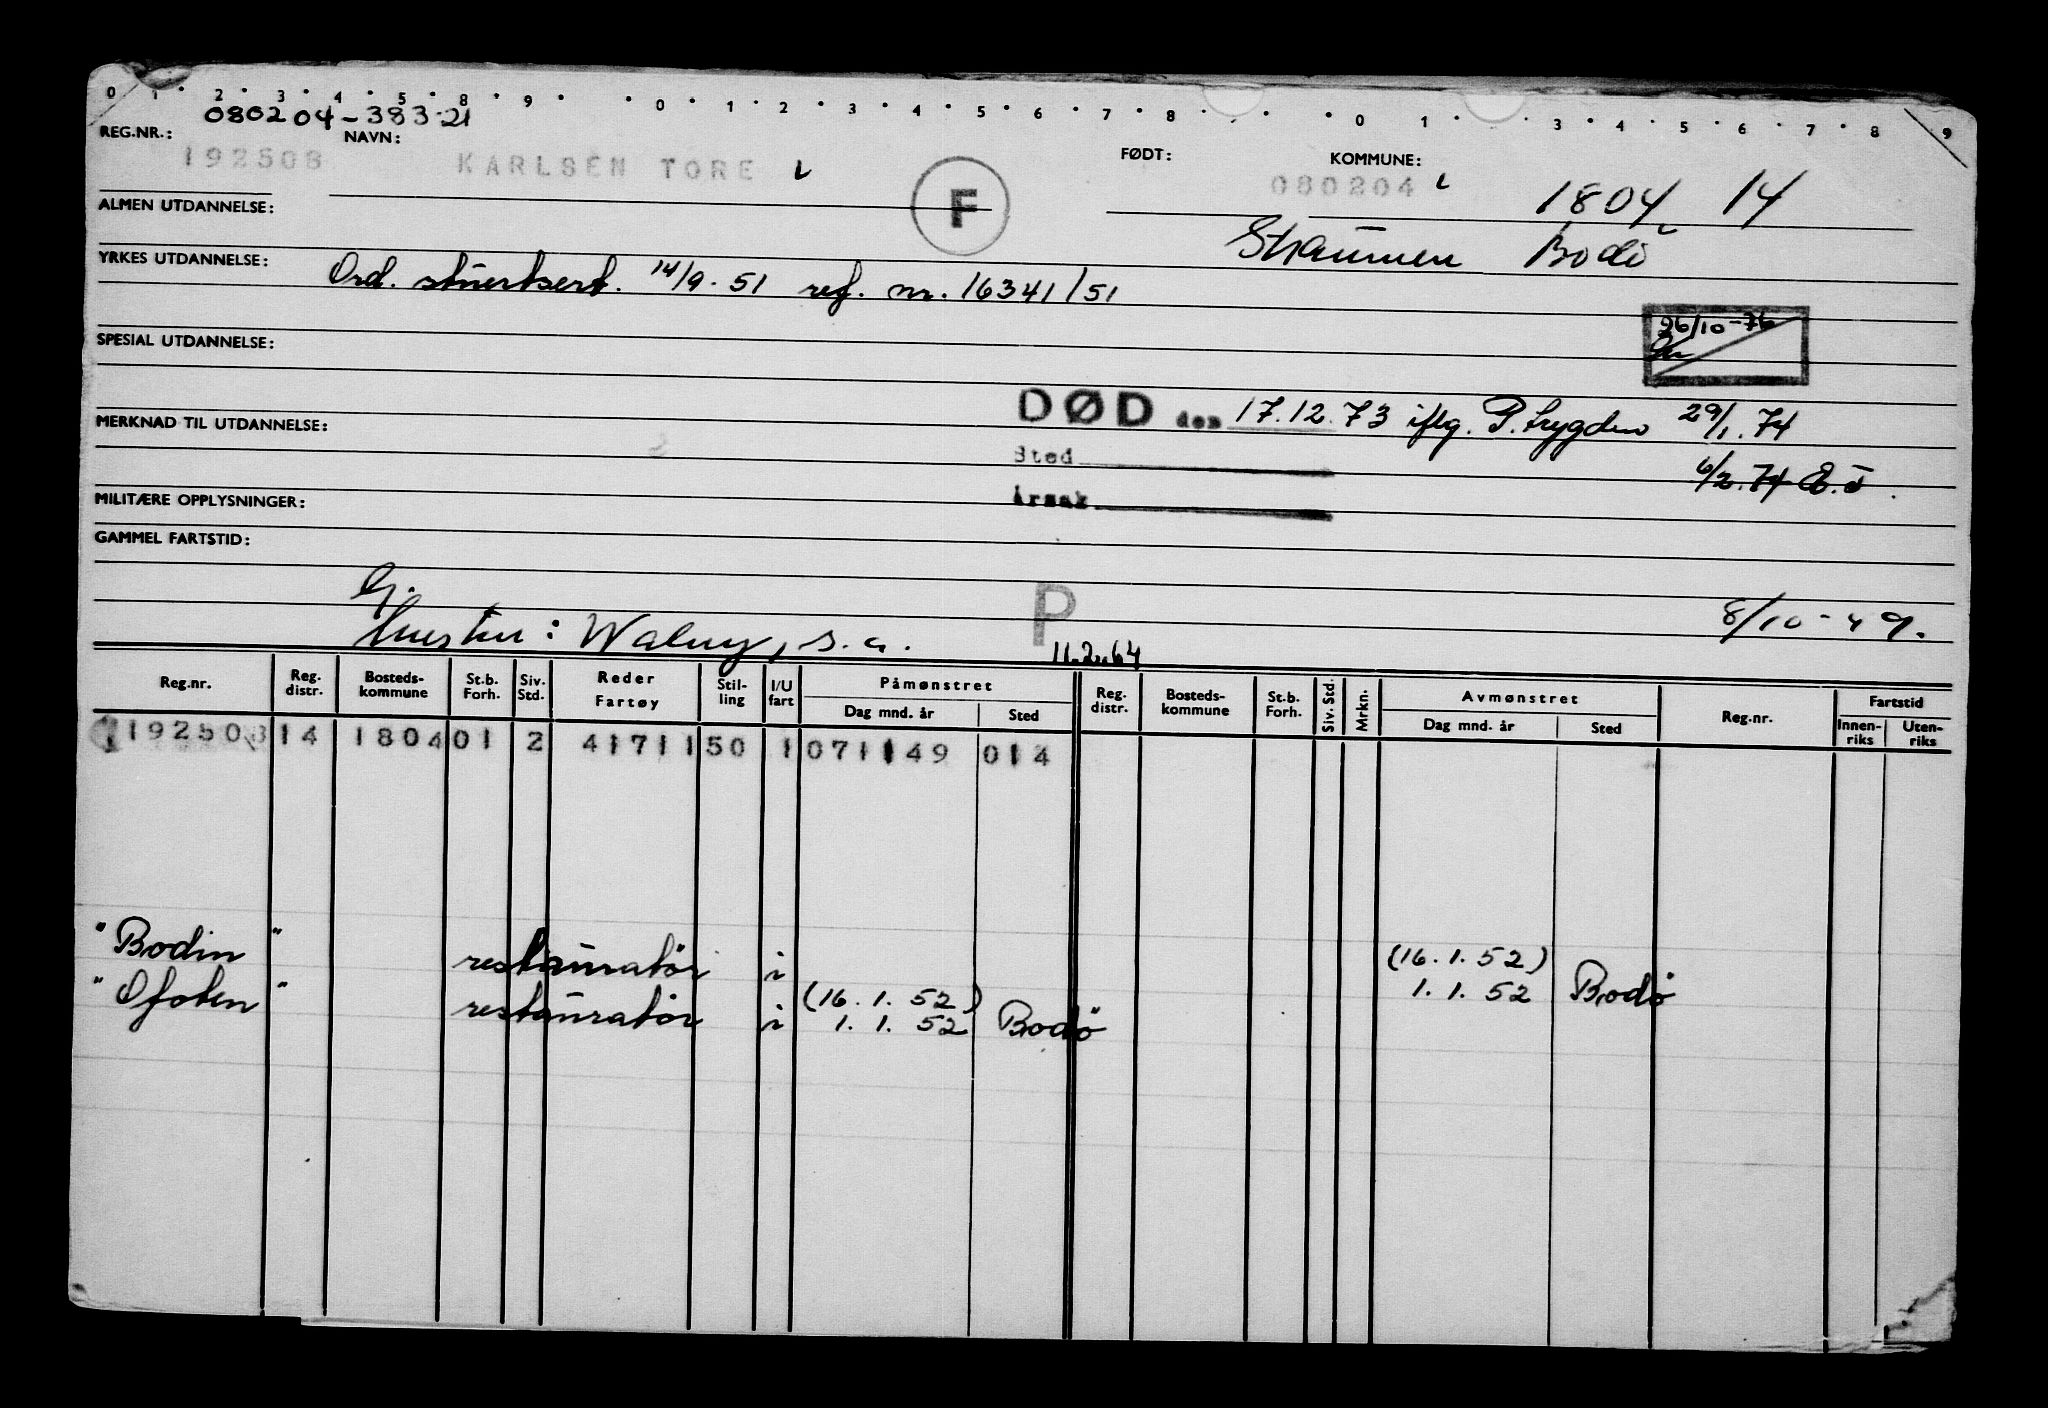 0 1 2 3 4 5 8 9 0 1 2 3 4 5 6 7 8 0 1 3 4 5 6 7 8 9
080204-383-21
REG.NR.: NAVN: FØDT: KOMMUNE:
192508 KARLSEN TORE 080204 1804 14
F
ALMEN UTDANNELSE:
Straumen Bodö
YRKES UTDANNELSE:
Ord. stuertsert. 14/9-51 ref. nr. 16341/51
26/10-76
SPESIAL UTDANNELSE:
DØD den 17.12.73 iflg. P.trygden 29/1.74
MERKNAD TIL UTDANNELSE:
Sted
6/2.74
MILITÆRE OPPLYSNINGER:
Årsak
GAMMEL FARTSTID:
G.
P
8/10-49.
11.2.64
Reg.nr. Reg. distr. Bosteds-kommune St.b. Forh. Siv. Std. Reder Fartøy Stil-ling I/U fart Påmønstret Dag mnd. år Sted Reg. distr. Bosteds-kommune St.b. Forh. Siv. Std. Mrkn. Avmønstret Dag mnd. år Sted Reg.nr. Fartstid Innen-riks Uten-riks
192508 14 1804 01 2 41711 50 1 071149 014
"Bodin" restauratör i (16.1.52)
1.1.52 Bodö
"Ofoten" restauratör i (16.1.52)
1.1.52 Bodö